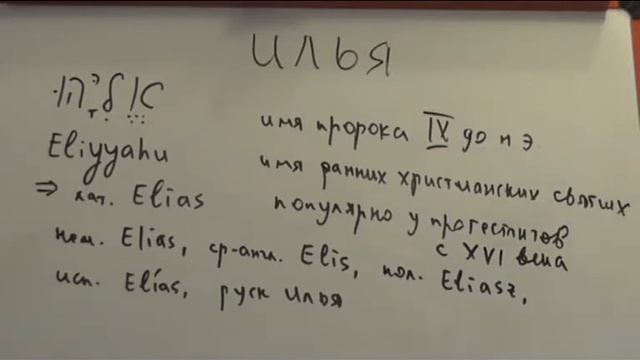 ИЛЬЯ
אליהו
Eliyyahu
⇒ лат. Elias
нем. Elias, ср-англ. Elis, пол. Eliasz,
исп. Elías, руск Илья
имя пророка IX до н э
имя ранних христианских святых
популярно у протестнтов
с XVI века